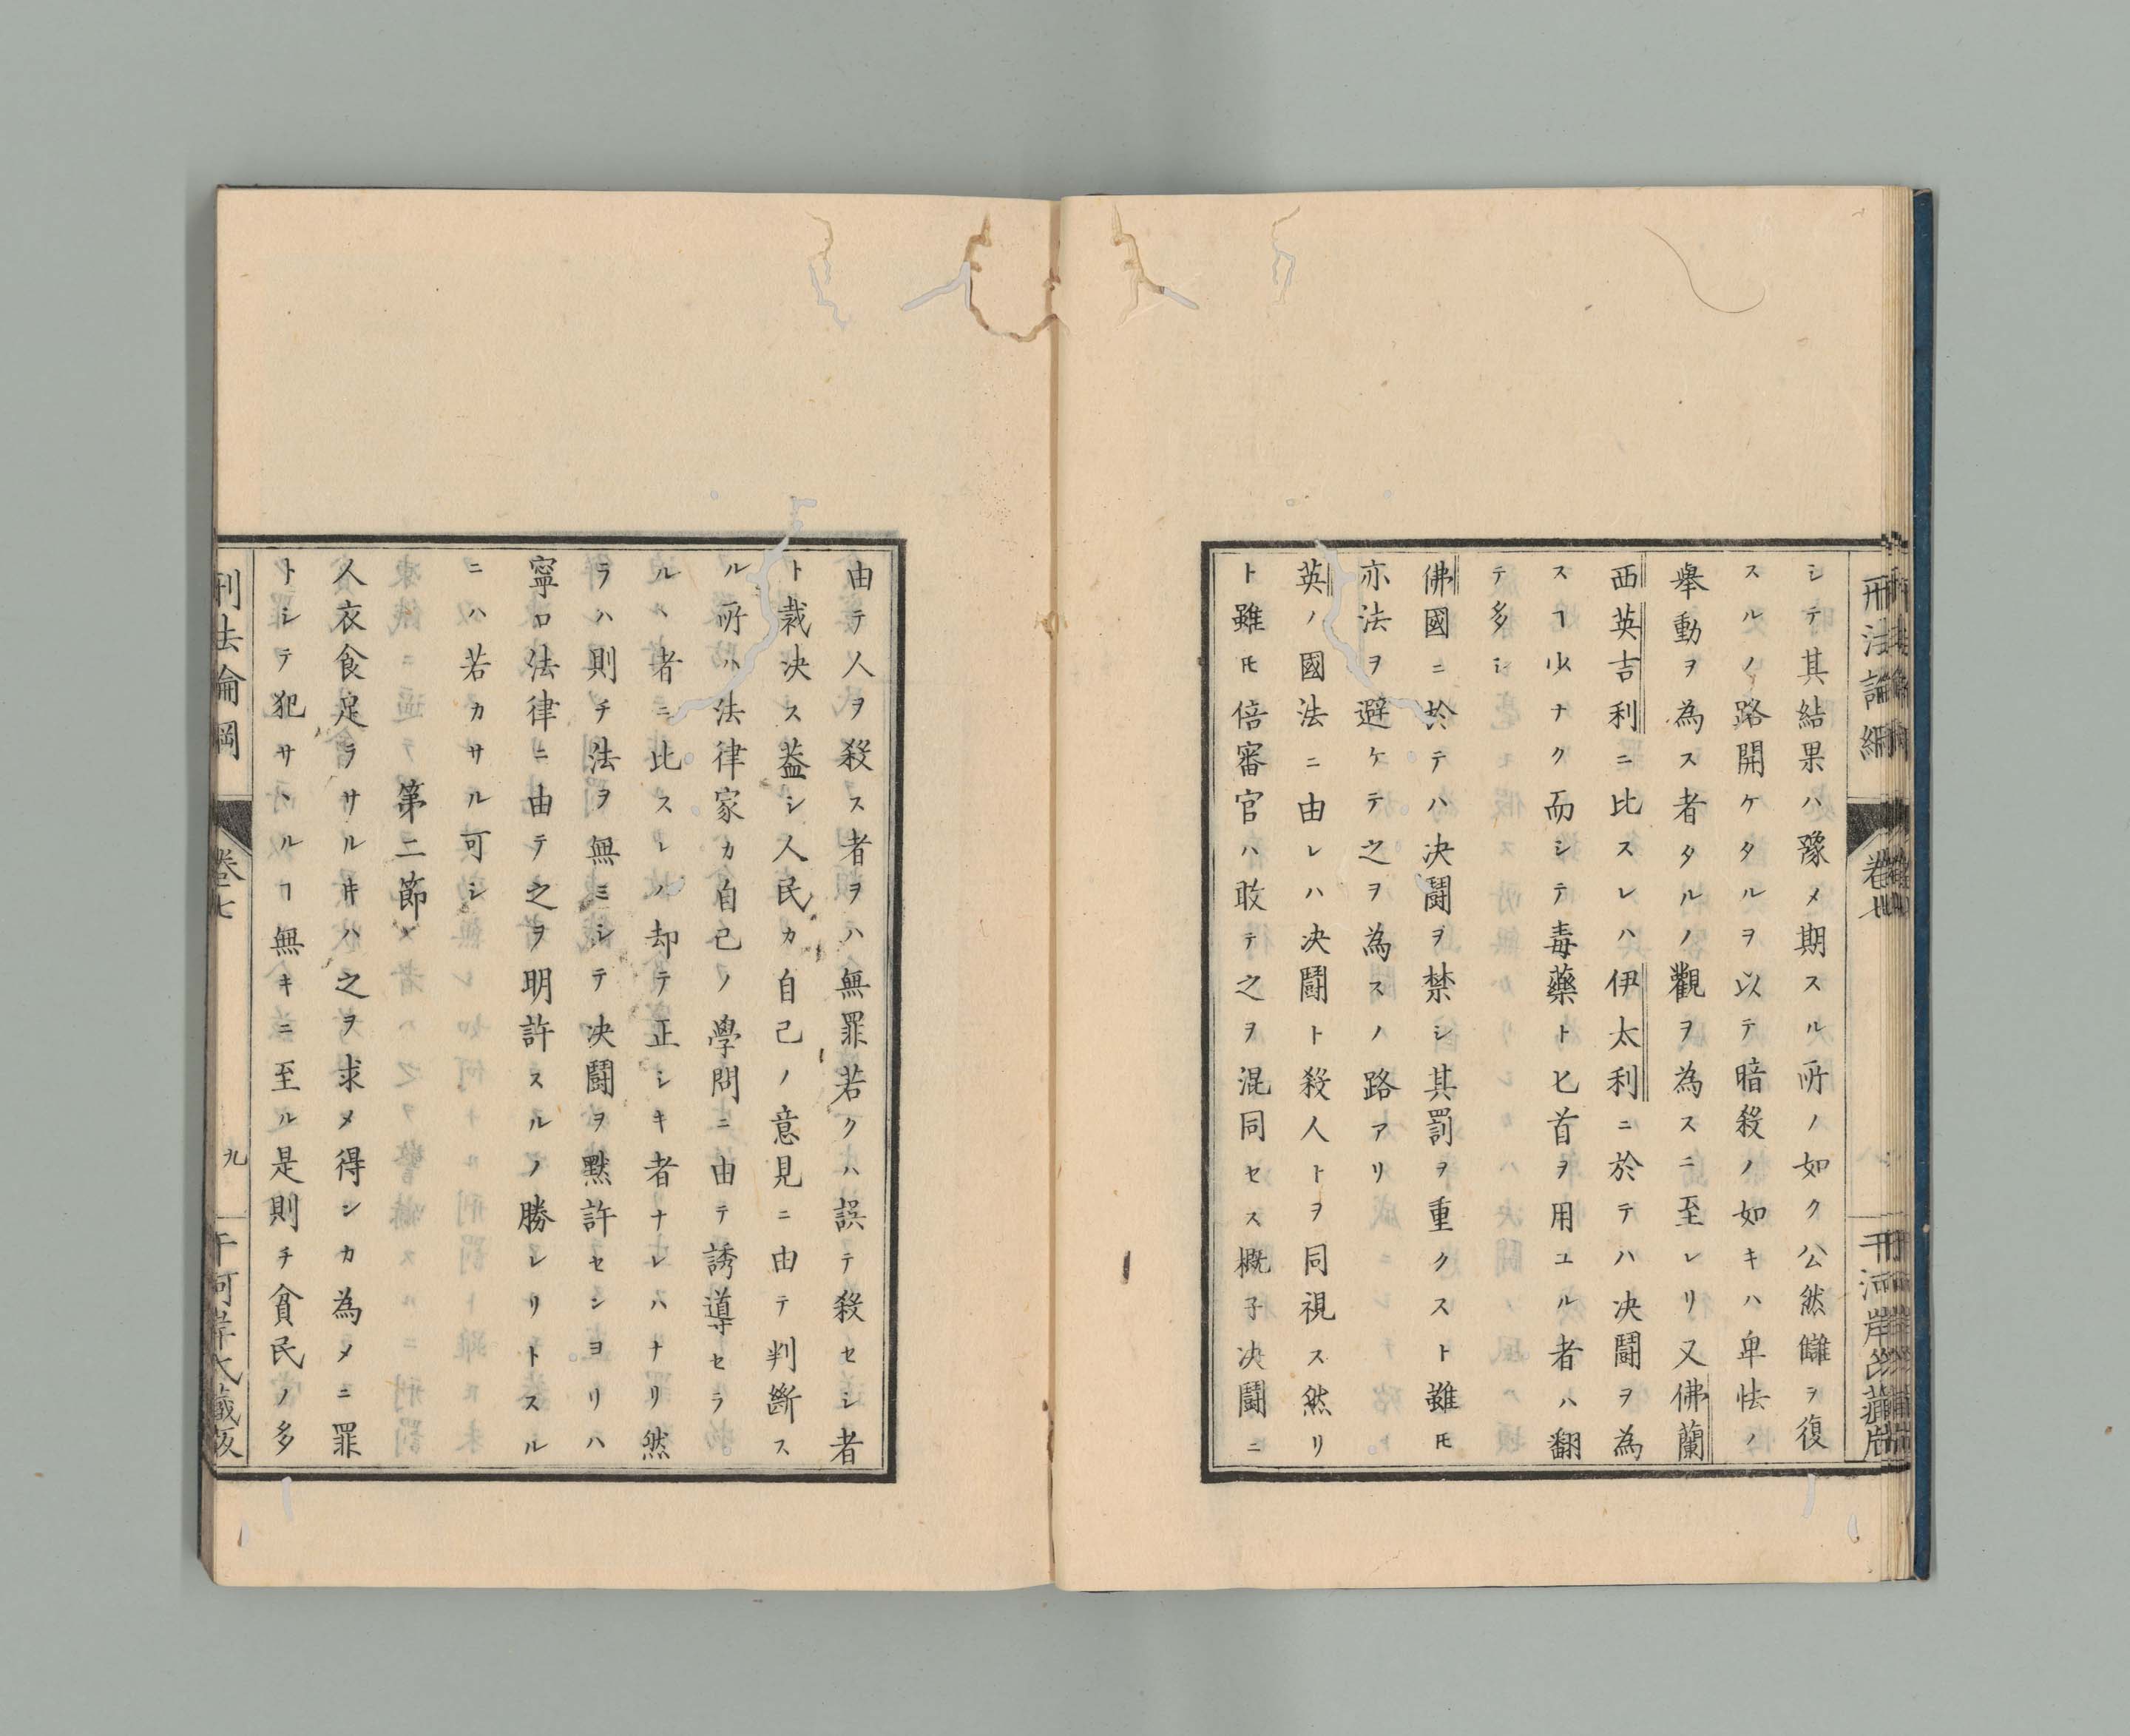 刑法論綱
卷七
シテ其結果ハ豫メ期スル所ノ如ク公然讎ヲ復
スルノ路開ケタルヲ以テ暗殺ノ如キハ卑怯ノ
擧動ヲ為ス者タルノ觀ヲ為スニ至レリ又佛蘭
西英吉利ニ比スレハ伊太利ニ於テハ决鬪ヲ為
スヿ少ナク而シテ毒藥ト匕首ヲ用ユル者ハ翻
テ多シ
佛國ニ於テハ决鬪ヲ禁シ其罰ヲ重クスト雖𪜈
亦法ヲ避ケテ之ヲ為スノ路アリ
英ノ國法ニ由レハ决鬪ト殺人トヲ同視ス然リ
ト雖𪜈倍審官ハ敢テ之ヲ混同セス概子决鬪ニ
由テ人ヲ殺ス者ヲハ無罪若クハ誤テ殺セシ者
ト裁决ス葢シ人民カ自己ノ意見ニ由テ判斷ス
ル所ハ法律家カ自己ノ學問ニ由テ誘導セラ
ルヽ者ニ比スレハ却テ正シキ者ナレハナリ然
ラハ則チ法ヲ無ミシテ决鬪ヲ黙許セシヨリハ
寧ロ法律ニ由テ之ヲ明許スルノ勝レリトスル
ニハ若カサル可シ
第二節
人衣食足ラサル寸ハ之ヲ求メ得ンカ為メニ罪
トシテ犯サヽルヿ無キニ至ル是則チ貧民ノ多
刑法論綱
卷七
九